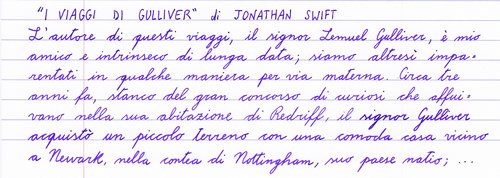 "I VIAGGI DI GULLIVER" di JONATHAN SWIFT
L'autore di questi viaggi, il signor Lemuel Gulliver, è mio
amico e intrinseco di lunga data; siamo altresì impa=
rentati in qualche maniera per via materna. Circa tre
anni fa, stanco del gran concorso di curiosi che afflui=
vano nella sua abitazione di Redriff, il signor Gulliver
acquistò un piccolo terreno con una comoda casa vicino
a Newark, nella contea di Nottingham, suo paese natio; ...